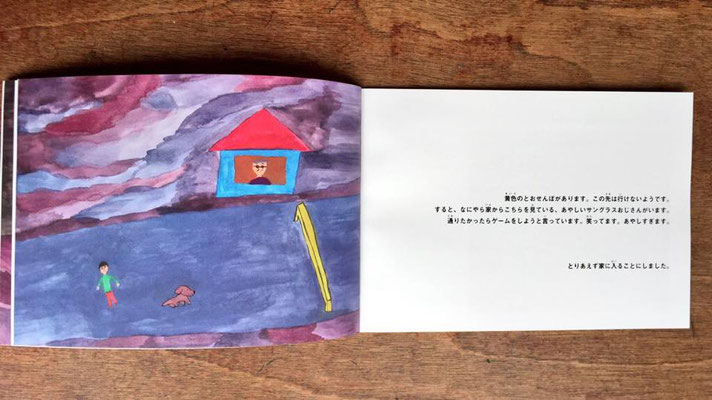 黄色のとおせんぼがあります。この先は行けないようです。
すると、なにやら家からこちらを見ている、あやしいサングラスおじさんがいます。
通りたかったらゲームをしようと言っています。笑ってます。あやしすぎます。
とりあえず家に入ることにしました。